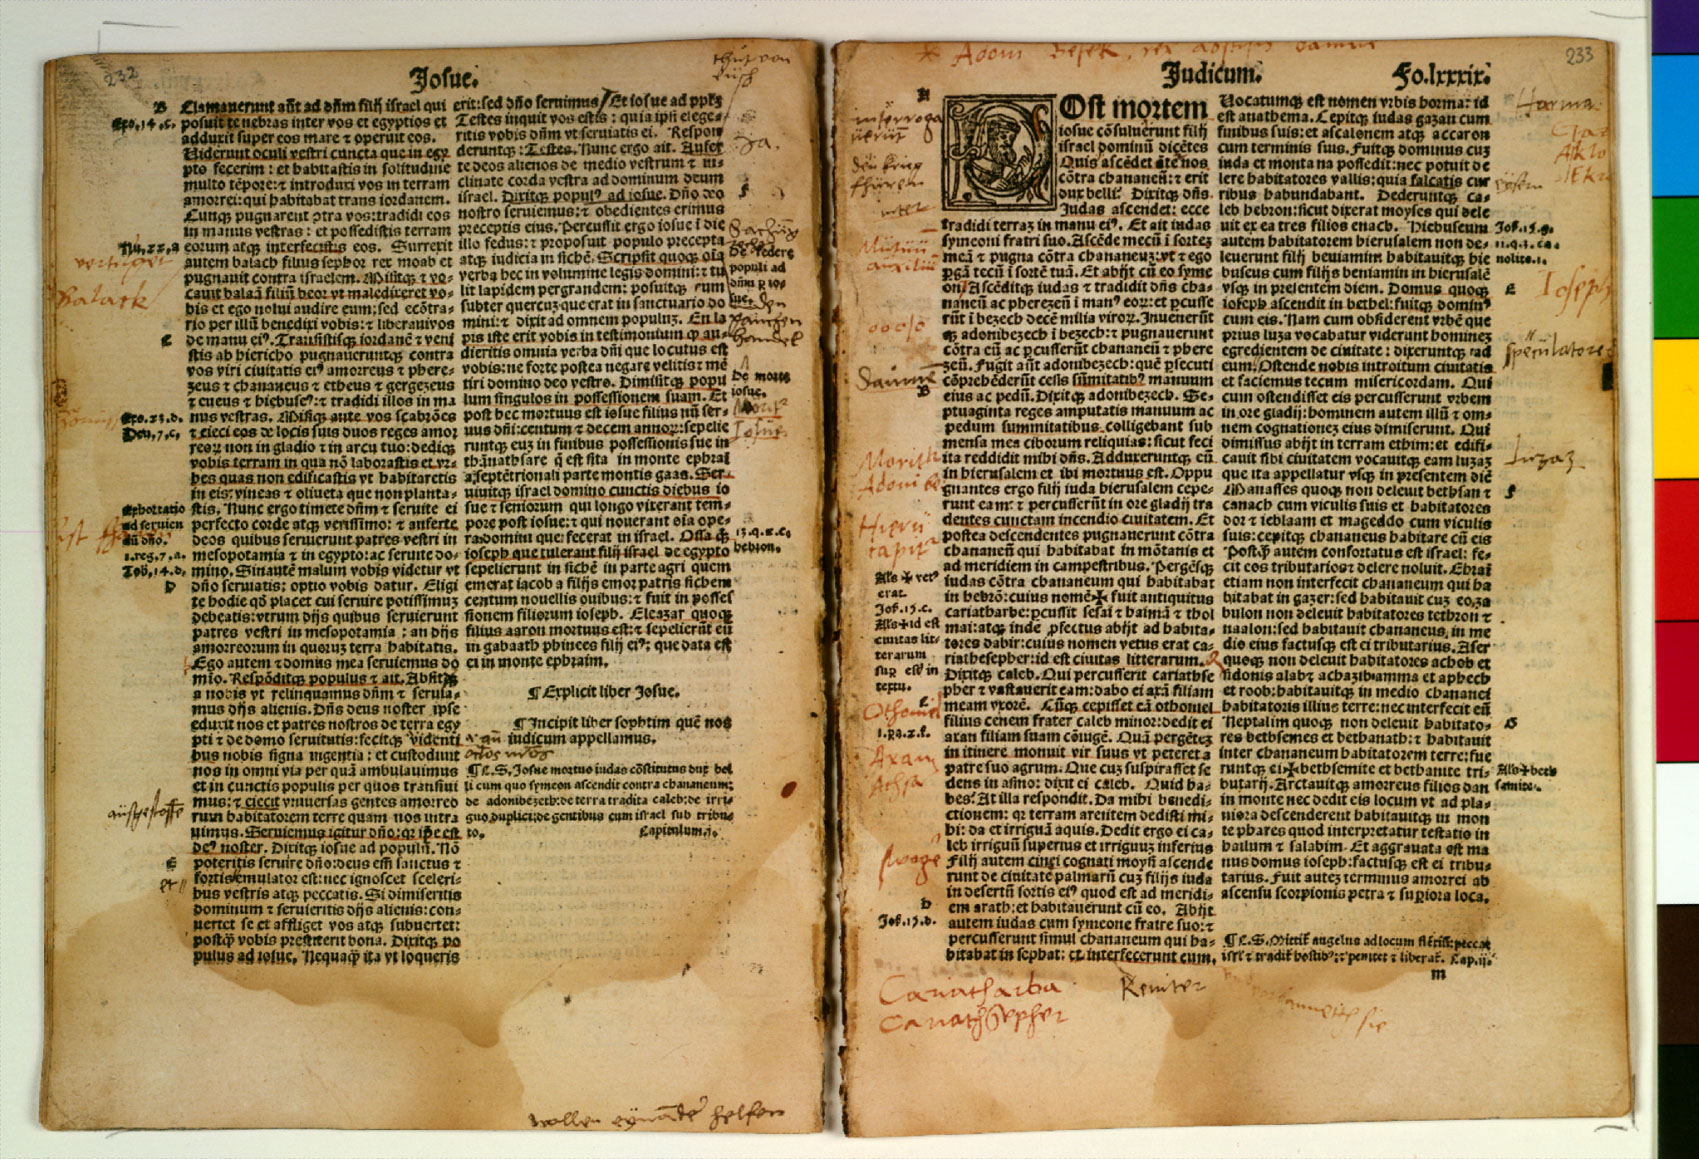 232
Josue.
Clamauerunt aūt ad dn̄m filij israel qui
posuit tenebras inter vos et egyptios et
adduxit super eos mare et operuit eos.
Uiderunt oculi vestri cuncta que in egy
pto fecerim: et habitastis in solitudine
multo tēpore: ⁊ introduxi vos in terram
amorrei: qui habitabat trans iordanem.
Cunqꝫ pugnarent ꝯtra vos: tradidi eos
in manus vestras: et possedistis terram
eorum atqꝫ interfecistis eos. Surrexit
autem balach filius sephor rex moab et
pugnauit contra israelem. Misitqꝫ ⁊ vo-
cauit balaā filiū beor: vt malediceret vo-
bis et ego nolui audire eum: sed ecōtra-
rio per illū benedixi vobis: ⁊ liberaui vos
de manu eiꝰ. Transistisqꝫ iordanē ⁊ veni
stis ad hiericho pugnaueruntqꝫ contra
vos viri ciuitatis eiꝰ amorreus ⁊ phere-
zeus ⁊ chananeus ⁊ etheus ⁊ gergezeus
et eueus ⁊ iebuseꝰ: ⁊ tradidi illos in ma
nus vestras. Misiqꝫ ante vos scabrōes
⁊ eieci eos de locis suis duos reges amor
reoꝝ non in gladio ⁊ in arcu tuo: dediqꝫ
vobis terram in qua nō laborastis et vr-
bes quas non edificastis vt habitaretis
in eis: vineas ⁊ oliueta que non planta-
stis. Nunc ergo timete dn̄m ⁊ seruite ei
perfecto corde atqꝫ verissimo: ⁊ auferte
deos quibus seruierunt patres vestri in
mesopotamia ⁊ in egypto: ac seruite do-
mino. Sin autē malum vobis videtur vt
dn̄o seruiatis: optio vobis datur. Eligi
te hodie qd̄ placet cui seruire potissimuꝫ
debeatis: vtrum dijs quibus seruierunt
patres vestri in mesopotamia: an dijs
amorreorum in quoruꝫ terra habitatis.
Ego autem ⁊ domus mea seruiemus do
mīo. Respōditqꝫ populus ⁊ ait. Absit
a nobis vt relinquamus dn̄m ⁊ seruia-
mus dijs alienis. Dn̄s deus noster ipse
eduxit nos et patres nostros de terra egy
pti ⁊ de domo seruitutis: fecitqꝫ videnti
bus nobis signa ingentia: et custodiuit
nos in omni via per quā ambulauimus
et in cunctis populis per quos transiui
mus: ⁊ eiecit vniuersas gentes amorreo
rum habitatorem terre quam nos intra
uimus. Seruiemus igitur dn̄o: qꝛ ip̄e est
deꝰ noster. Dixitqꝫ iosue ad populū. Nō
poteritis seruire dn̄o: deus em̄ sanctus ⁊
fortis emulator est: nec ignoscet sceleri-
bus vestris atqꝫ peccatis. Si dimiseritis
dominum ⁊ seruieritis dijs alienis: con-
uertet se et affliget vos atqꝫ subuertet:
postqꝫ vobis prestiterit bona. Dixitqꝫ po
pulus ad iosue. Nequaqꝫ ita vt loqueris
erit: sed dn̄o seruimus. Et iosue ad pplꝫ
Testes inquit vos estis: quia ipsi elege-
ritis vobis dn̄m vt seruiatis ei. Respon
deruntqꝫ: Testes. Nunc ergo ait. Aufer
te deos alienos de medio vestrum ⁊ in-
clinate corda vestra ad dominum deum
israel. Dixitqꝫ populꝰ ad iosue. Dn̄o deo
nostro seruiemus: ⁊ obedientes erimus
preceptis eius. Percussit ergo iosue i die
illo fedus: ⁊ proposuit populo precepta
atqꝫ iudicia in sichē. Scripsit quoqꝫ oīa
verba hec in volumine legis domini: ⁊ tu
lit lapidem pergrandem: posuitqꝫ eum
subter quercuꝫ que erat in sanctuario do
mini: ⁊ dixit ad omnem populuꝫ. En la
pis iste erit vobis in testimonium qꝫ au-
dieritis omnia verba dn̄i que locutus est
vobis: ne forte postea negare velitis: ⁊ mē
tiri domino deo vestro. Dimisitqꝫ popu
lum singulos in possessionem suam. Et
post hec mortuus est iosue filius nū ser-
uus dn̄i: centum ⁊ decem annoꝝ: sepelie
runtqꝫ eum in finibus possessionis sue in
thānathsare q̄ est sita in monte ephrai
a septētrionali parte montis gaas. Ser-
uiuitqꝫ israel domino cunctis diebus io
sue ⁊ seniorum qui longo vixerant tem-
pore post iosue: ⁊ qui nouerant oīa ope-
ra domini que fecerat in israel. Ossa qꝫ
ioseph que tulerant filij israel de egypto
sepelierunt in sichē in parte agri quem
emerat iacob a filijs emor patris sichem
centum nouellis ouibus: ⁊ fuit in posses
sionem filiorum ioseph. Eleazar quoqꝫ
filius aaron mortuus est: ⁊ sepelierūt eū
in gabaath phinees filij eiꝰ: que data est
ei in monte ephraim.
¶ Explicit liber Josue.
¶ Incipit liber sophtim quē nos
iudicum appellamus.
¶ L.S. Josue mortuo iudas cōstitutus dux bel
li cum quo symeon ascendit contra chananeum:
de adonibezeth: de terra tradita caleb: de irri-
guo duplici: de gentibus cum israel sub tribu-
to. Capitulum.j.
B
Exo.14.c.
Nu.22.a
Balack
C
Exo.23.d.
Deu.7.c.
Exhortatio
ad seruien
dū dn̄o.
1.reg.7.a.
Tob.14.d.
D
E
F
De federe
populi ad
dn̄m ꝑ io-
sue.
De morte
iosue.
13.q.2.c.
hebron.
wollen eynander helfen
233
Judicum.
Fo.lxxxix.
POst mortem
iosue cōsuluerunt filij
israel dominū dicētes
Quis ascēdet āte nos
cōtra chananeū: ⁊ erit
dux belli? Dixitqꝫ dn̄s.
Judas ascendet: ecce
tradidi terraꝫ in manu eiꝰ. Et ait iudas
symeoni fratri suo. Ascēde mecū i sortez
meā ⁊ pugna cōtra chananeuꝫ: vt ⁊ ego
ꝑgā tecū i sortē tuā. Et abijt cū eo syme
on. Ascēditqꝫ iudas ⁊ tradidit dn̄s cha-
naneū ac pherezeū i manꝰ eoꝝ: et ꝑcusse
rūt i bezech decē milia viroꝝ. Inuenerūt
qꝫ adonibezech i bezech: ⁊ pugnauerunt
cōtra eū ac ꝑcusserūt chananeū ⁊ phere
zeū. Fugit aūt adonibezech: quē ꝑsecuti
cōprehēderūt cesis sūmitatibꝰ manuum
eius ac pedū. Dixitqꝫ adonibezech. Se-
ptuaginta reges amputatis manuum ac
pedum summitatibus colligebant sub
mensa mea ciborum reliquias: sicut feci
ita reddidit mihi dn̄s. Adduxeruntqꝫ eū
in hierusalem et ibi mortuus est. Oppu
gnantes ergo filij iuda hierusalem cepe-
runt eam: ⁊ percusserūt in ore gladij tra
dentes cunctam incendio ciuitatem. Et
postea descendentes pugnauerunt cōtra
chananeū qui habitabat in mōtanis et
ad meridiem in campestribus. Pergēsqꝫ
iudas cōtra chananeum qui habitabat
in hebrō: cuius nomē✠ fuit antiquitus
cariatharbe: ꝑcussit sesai ⁊ haimā ⁊ thol
mai: atqꝫ inde ꝓfectus abijt ad habita-
tores dabir: cuius nomen vetus erat ca-
riathsepher: id est ciuitas litterarum.
Dixitqꝫ caleb. Qui percusserit cariathse
pher ⁊ vastauerit eam: dabo ei axā filiam
meam vxorē. Cūqꝫ cepisset eā othoniel
filius cenem frater caleb minor: dedit ei
axan filiam suam cōiugē. Quā pergētez
in itinere monuit vir suus vt peteret a
patre suo agrum. Que cuꝫ suspirasset se
dens in asino: dixit ei caleb. Quid ha-
bes? At illa respondit. Da mihi benedi-
ctionem: qꝛ terram arentem dedisti mi-
hi: da et irriguā aquis. Dedit ergo ei ca-
leb irriguū superius et irriguuꝫ inferius
Filij autem cinei cognati moysi ascende
runt de ciuitate palmarū cuꝫ filijs iuda
in desertū sortis eiꝰ quod est ad meridi-
em arath: et habitauerunt cū eo. Abijt
autem iudas cum symeone fratre suo: ⁊
percusserunt simul chananeum qui ha-
bitabat in sephat: et interfecerunt eum.
Uocatumqꝫ est nomen vrbis horma: id
est anathema. Cepitqꝫ iudas gazan cum
finibus suis: et ascalonem atqꝫ accaron
cum terminis suis. Fuitqꝫ dominus cuꝫ
iuda et montana possedit: nec potuit de
lere habitatores vallis: quia falcatis cur
ribus habundabant. Dederuntqꝫ ca-
leb hebron: sicut dixerat moyses qui dele
uit ex ea tres filios enach. Hiebuseum
autem habitatorem hierusalem non de-
leuerunt filij beniamin: habitauitqꝫ hie
buseus cum filijs beniamin in hierusalē
vsqꝫ in presentem diem. Domus quoqꝫ
ioseph ascendit in bethel: fuitqꝫ dominꝰ
cum eis. Nam cum obsiderent vrbē que
prius luza vocabatur viderunt hominez
egredientem de ciuitate: dixeruntqꝫ ad
eum. Ostende nobis introitum ciuitatis
et faciemus tecum misericordam. Qui
cum ostendisset eis percusserunt vrbem
in ore gladij: hominem autem illū ⁊ om-
nem cognationez eius dimiserunt. Qui
dimissus abijt in terram ethim: et edifi-
cauit sibi ciuitatem vocauitqꝫ eam luzaꝫ
que ita appellatur vsqꝫ in presentem diē
Manasses quoqꝫ non deleuit bethsan ⁊
canach cum viculis suis et habitatores
dor ⁊ ieblaam et mageddo cum viculis
suis: cepitqꝫ chananeus habitare cū eis
Postqꝫ autem confortatus est israel: fe-
cit eos tributarios ⁊ delere noluit. Ebrai
etiam non interfecit chananeum qui ha
bitabat in gazer: sed habitauit cuꝫ eo. za
bulon non deleuit habitatores cethron ⁊
naalon: sed habitauit chananeus in me
dio eius factusqꝫ est ei tributarius. Aser
quoqꝫ non deleuit habitatores achob et
sidonis alab ⁊ achazib: amma ⁊ aphech
et roob: habitauitqꝫ in medio chananei
habitatoris illius terre: nec interfecit eū
Neptalim quoqꝫ non deleuit habitato-
res bethsemes et bethanath: ⁊ habitauit
inter chananeum habitatorem terre: fue
runtqꝫ ei✠bethsemite et bethanite tri-
butarij. Arctauitqꝫ amorreus filios dan
in monte nec dedit eis locum vt ad pla-
niora descenderent habitauitqꝫ in mon
te phares quod interpretatur testatio in
hailum ⁊ salabim. Et aggrauata est ma
nus domus ioseph: factusqꝫ est ei tribu-
tarius. Fuit autez terminus amorrei ab
ascensu scorpionis petra ⁊ superiora loca.
A
B
Als ✠ verꝰ
erat.
Jos.15.c.
Als ✠ id est
ciuitas lit-
terarum
sup. est in
textu.
C
1.pa.2.f.
D
Jos.15.d.
Jos.15.g.
E
Ioseph
F
G
Als✠beth
samite.
Cariatharba
Cariathsepher
m